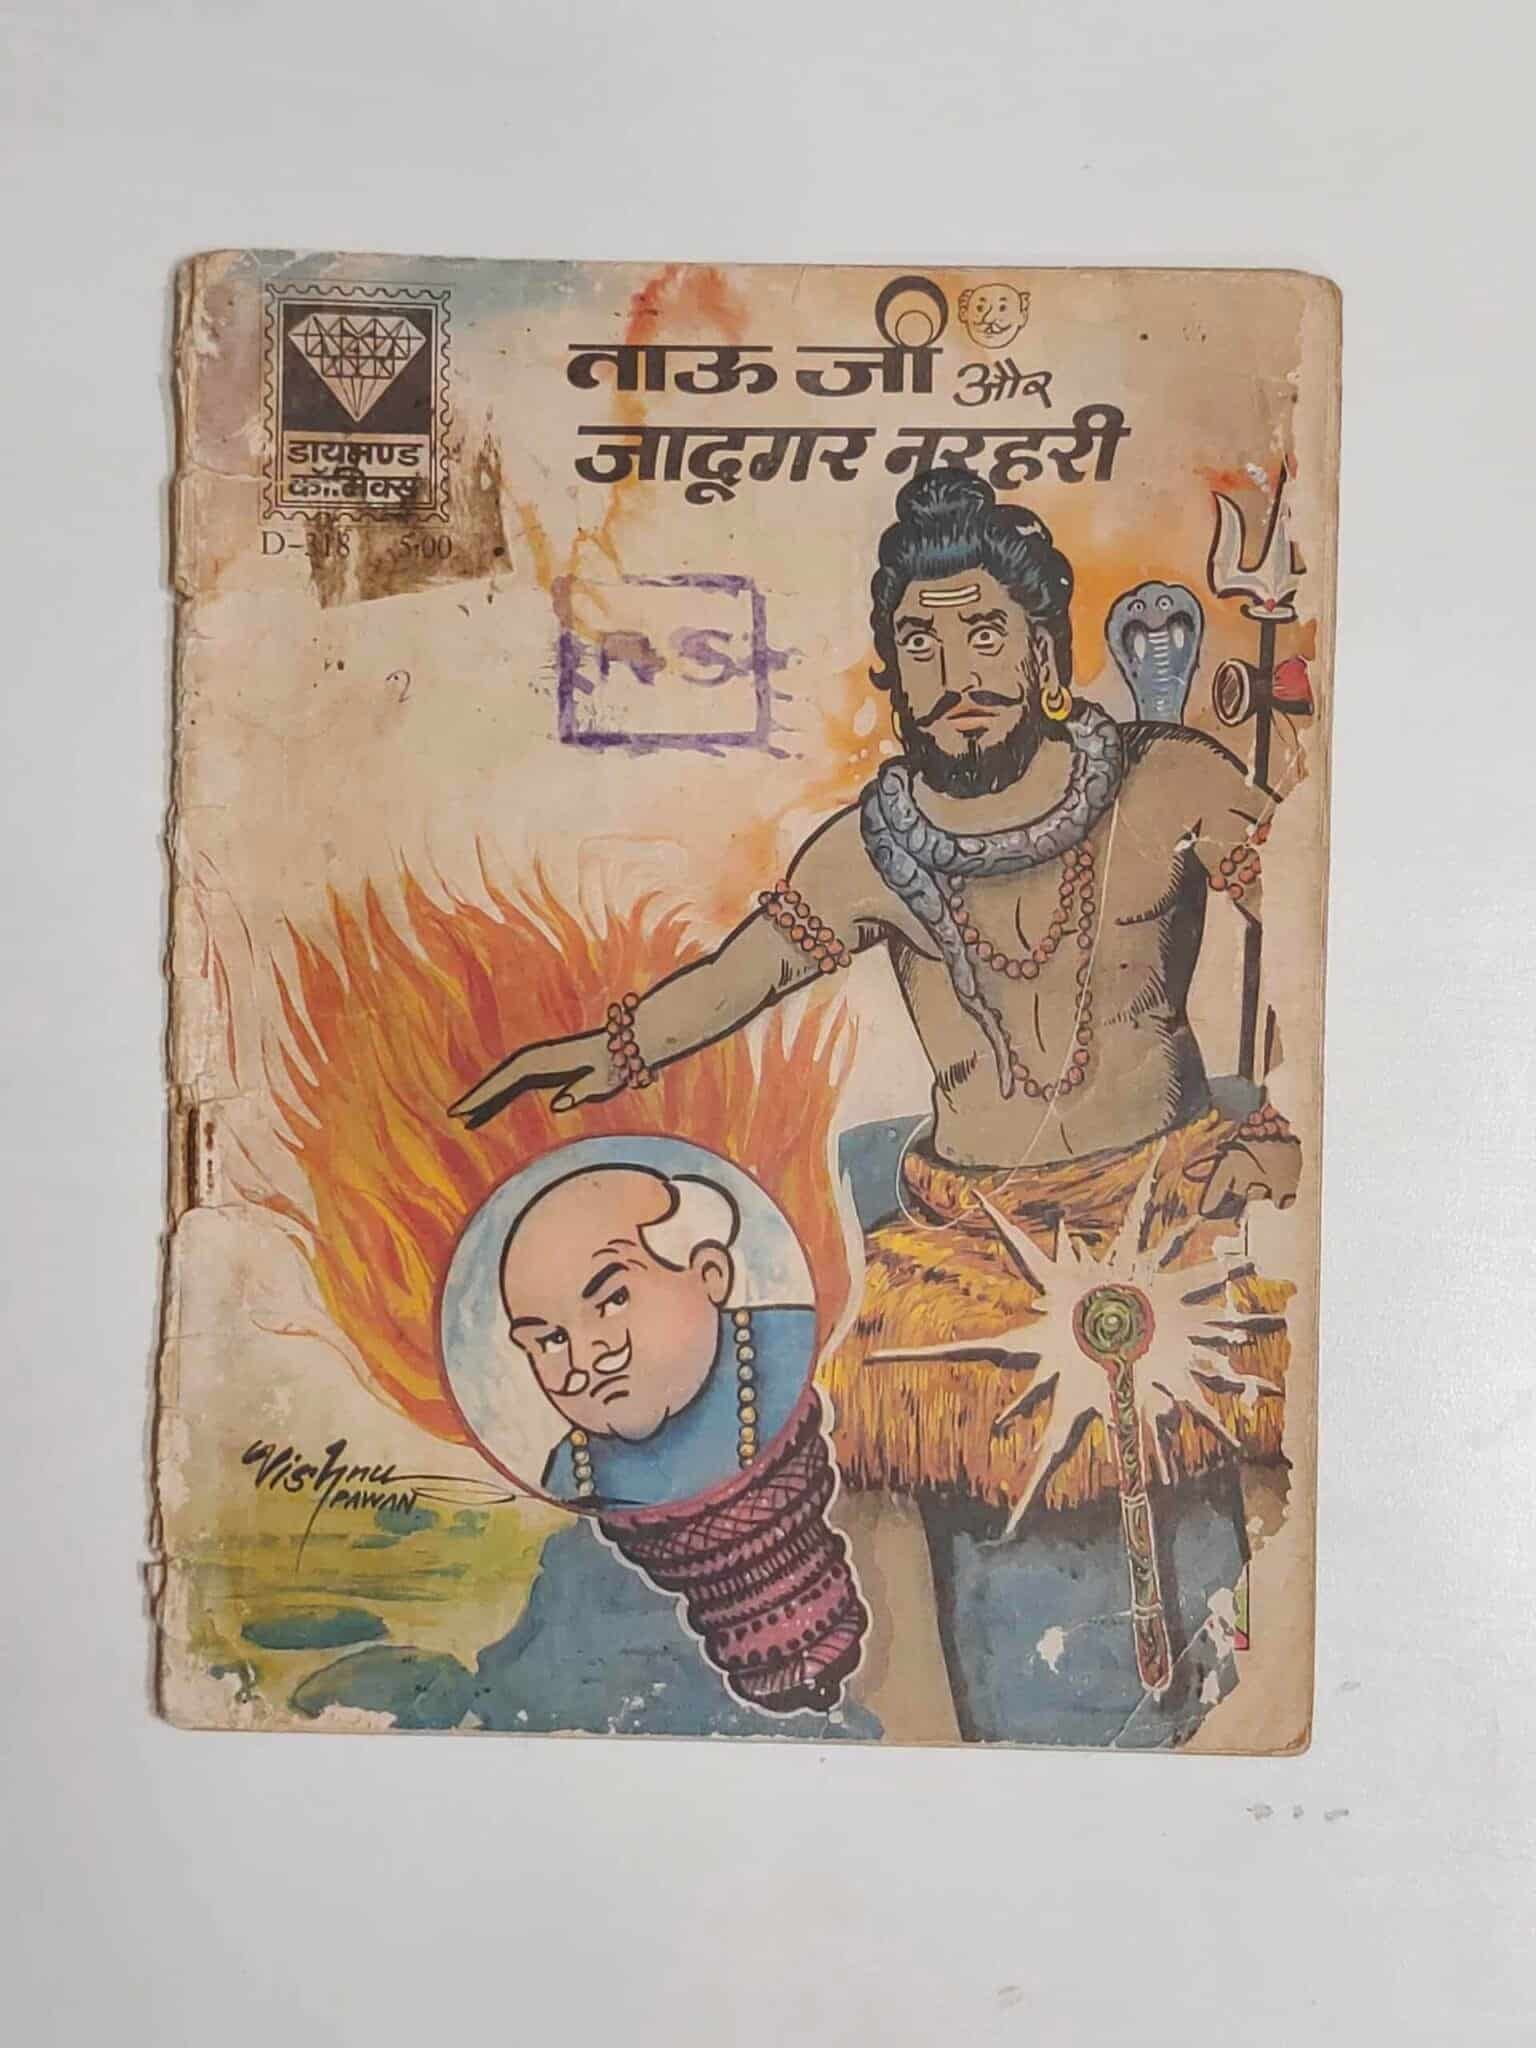 ताऊ जी और
जादूगर नरहरी
डायमण्ड
कॉमिक्स
D-318 5.00
RS
2
Vishnu
PAWAN